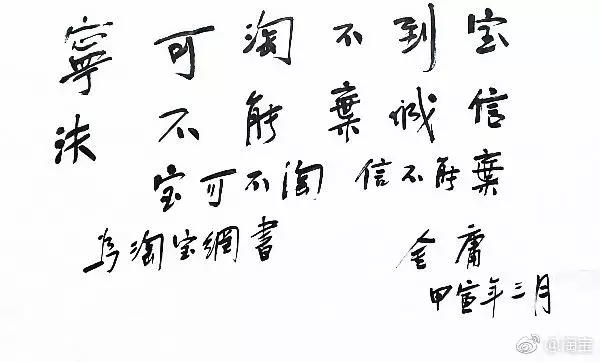 寧可淘不到宝
決不能棄诚信
宝可不淘 信不能棄
為淘宝網書
金庸
甲寅年三月
@淘宝